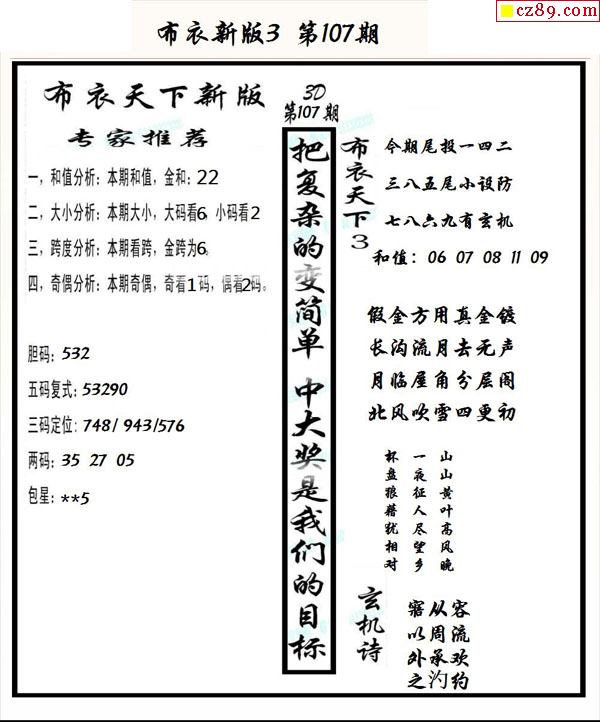 cz89.com
布衣新版3 第107期
布衣天下新版
专家推荐
一，和值分析：本期和值，金和：22
二，大小分析：本期大小，大码看6，小码看2
三，跨度分析：本期看跨，金跨为6。
四，奇偶分析：本期奇偶，奇看1码，偶看2码。
胆码：532
五码复式：53290
三码定位：748/ 943/576
两码：35 27 05
包星：**5
3D
第107期
把复杂的变简单 中大奖是我们的目标
布衣天下3
今期尾投一四二
三八五尾小设防
七八六九有玄机
和值：06 07 08 11 09
假金方用真金镀
长沟流月去无声
月临屋角分层阁
北风吹雪四更初
山山黄叶高风晚
一夜征人尽望乡
杯盘狼藉犹相对
玄机诗
容流欢约
从周承汋
寤以外之